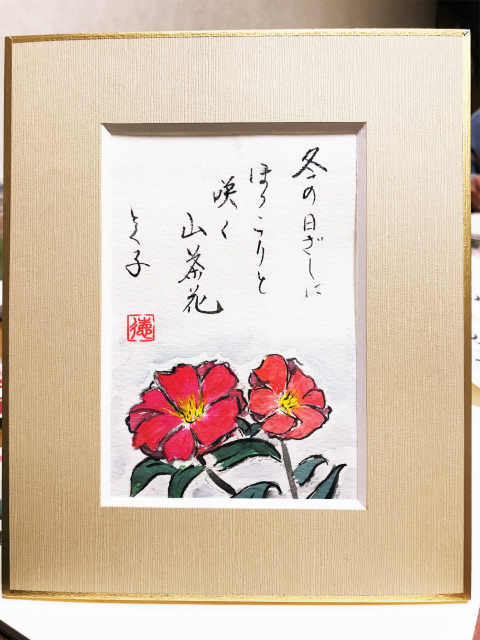 冬の日ざしに
ほっこりと
咲く
山茶花
とく子
德